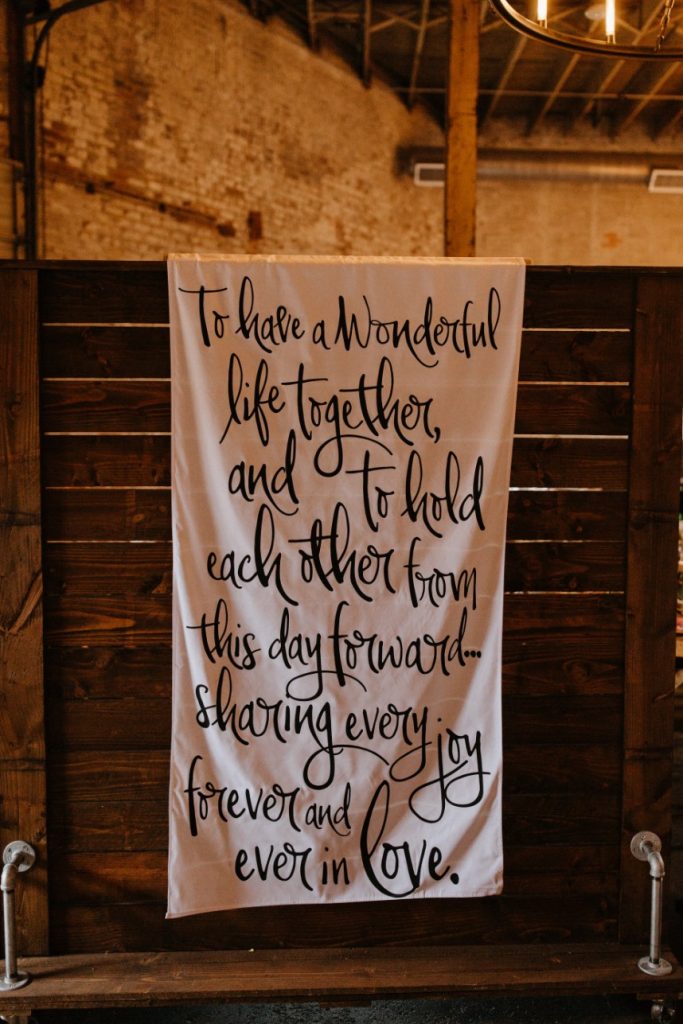 To have a Wonderful
life together,
and to hold
each other from
this day forward...
sharing every joy
forever and
ever in love.